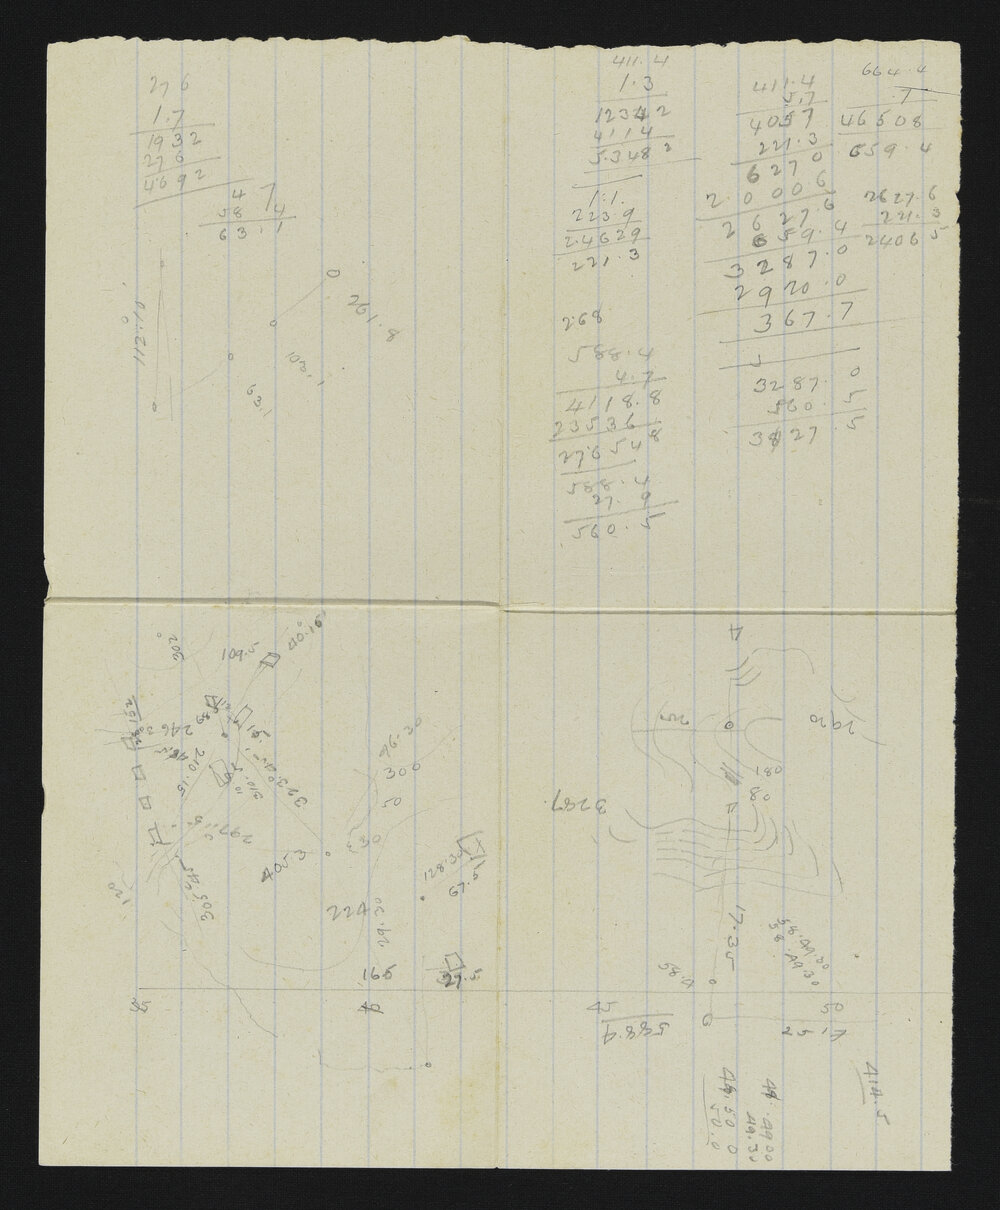 276
1.7
1932
276
4692
47
58 4
63.1
112.10
261.8
103.1
63.1
411.4
1.3
12342
4114
5348 2
1.1.
223.9
2.4629
221.3
268
588.4
4.7
4118.8
23536
27654 8
588.4
27.9
560.5
411.4
5.7
4057
221.3
6270
2.0006
2627.6
659.4
3287.0
2920.0
367.7
3287.0
560.5
3827.5
664.4
.7
46508
659.4
2627.6
221.3
2406 5
302°
109.5
40.15
246
210.15
310.5
323.45
297.15
405.3
305.45
120
96.30
300
50
30
224
29.30
128.30
67.5
165
27.5
35
40
25
2920
180
80
3287
17.35
58.4
58.49.30
58.49.30
45
588.4
50
25
414.5
49.4900
49.30
49.50 0
50.0